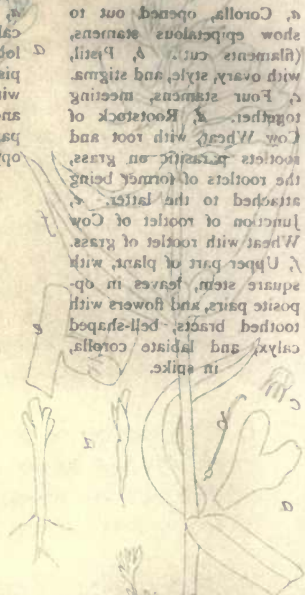 a, Corolla, opened out to
show epipetalous stamens,
(filaments cut). b, Pistil,
with ovary, style, and stigma.
c, Four stamens, meeting
together. d, Rootstock of
Cow Wheat, with root and
rootlets parasitic on grass,
the rootlets of former being
attached to the latter. e,
Junction of rootlet of Cow
Wheat with rootlet of grass.
f, Upper part of plant, with
square stem, leaves in op-
posite pairs, and flowers with
toothed bracts, bell-shaped
calyx, and labiate corolla,
in spike.
a
f
e
c
b
d
a